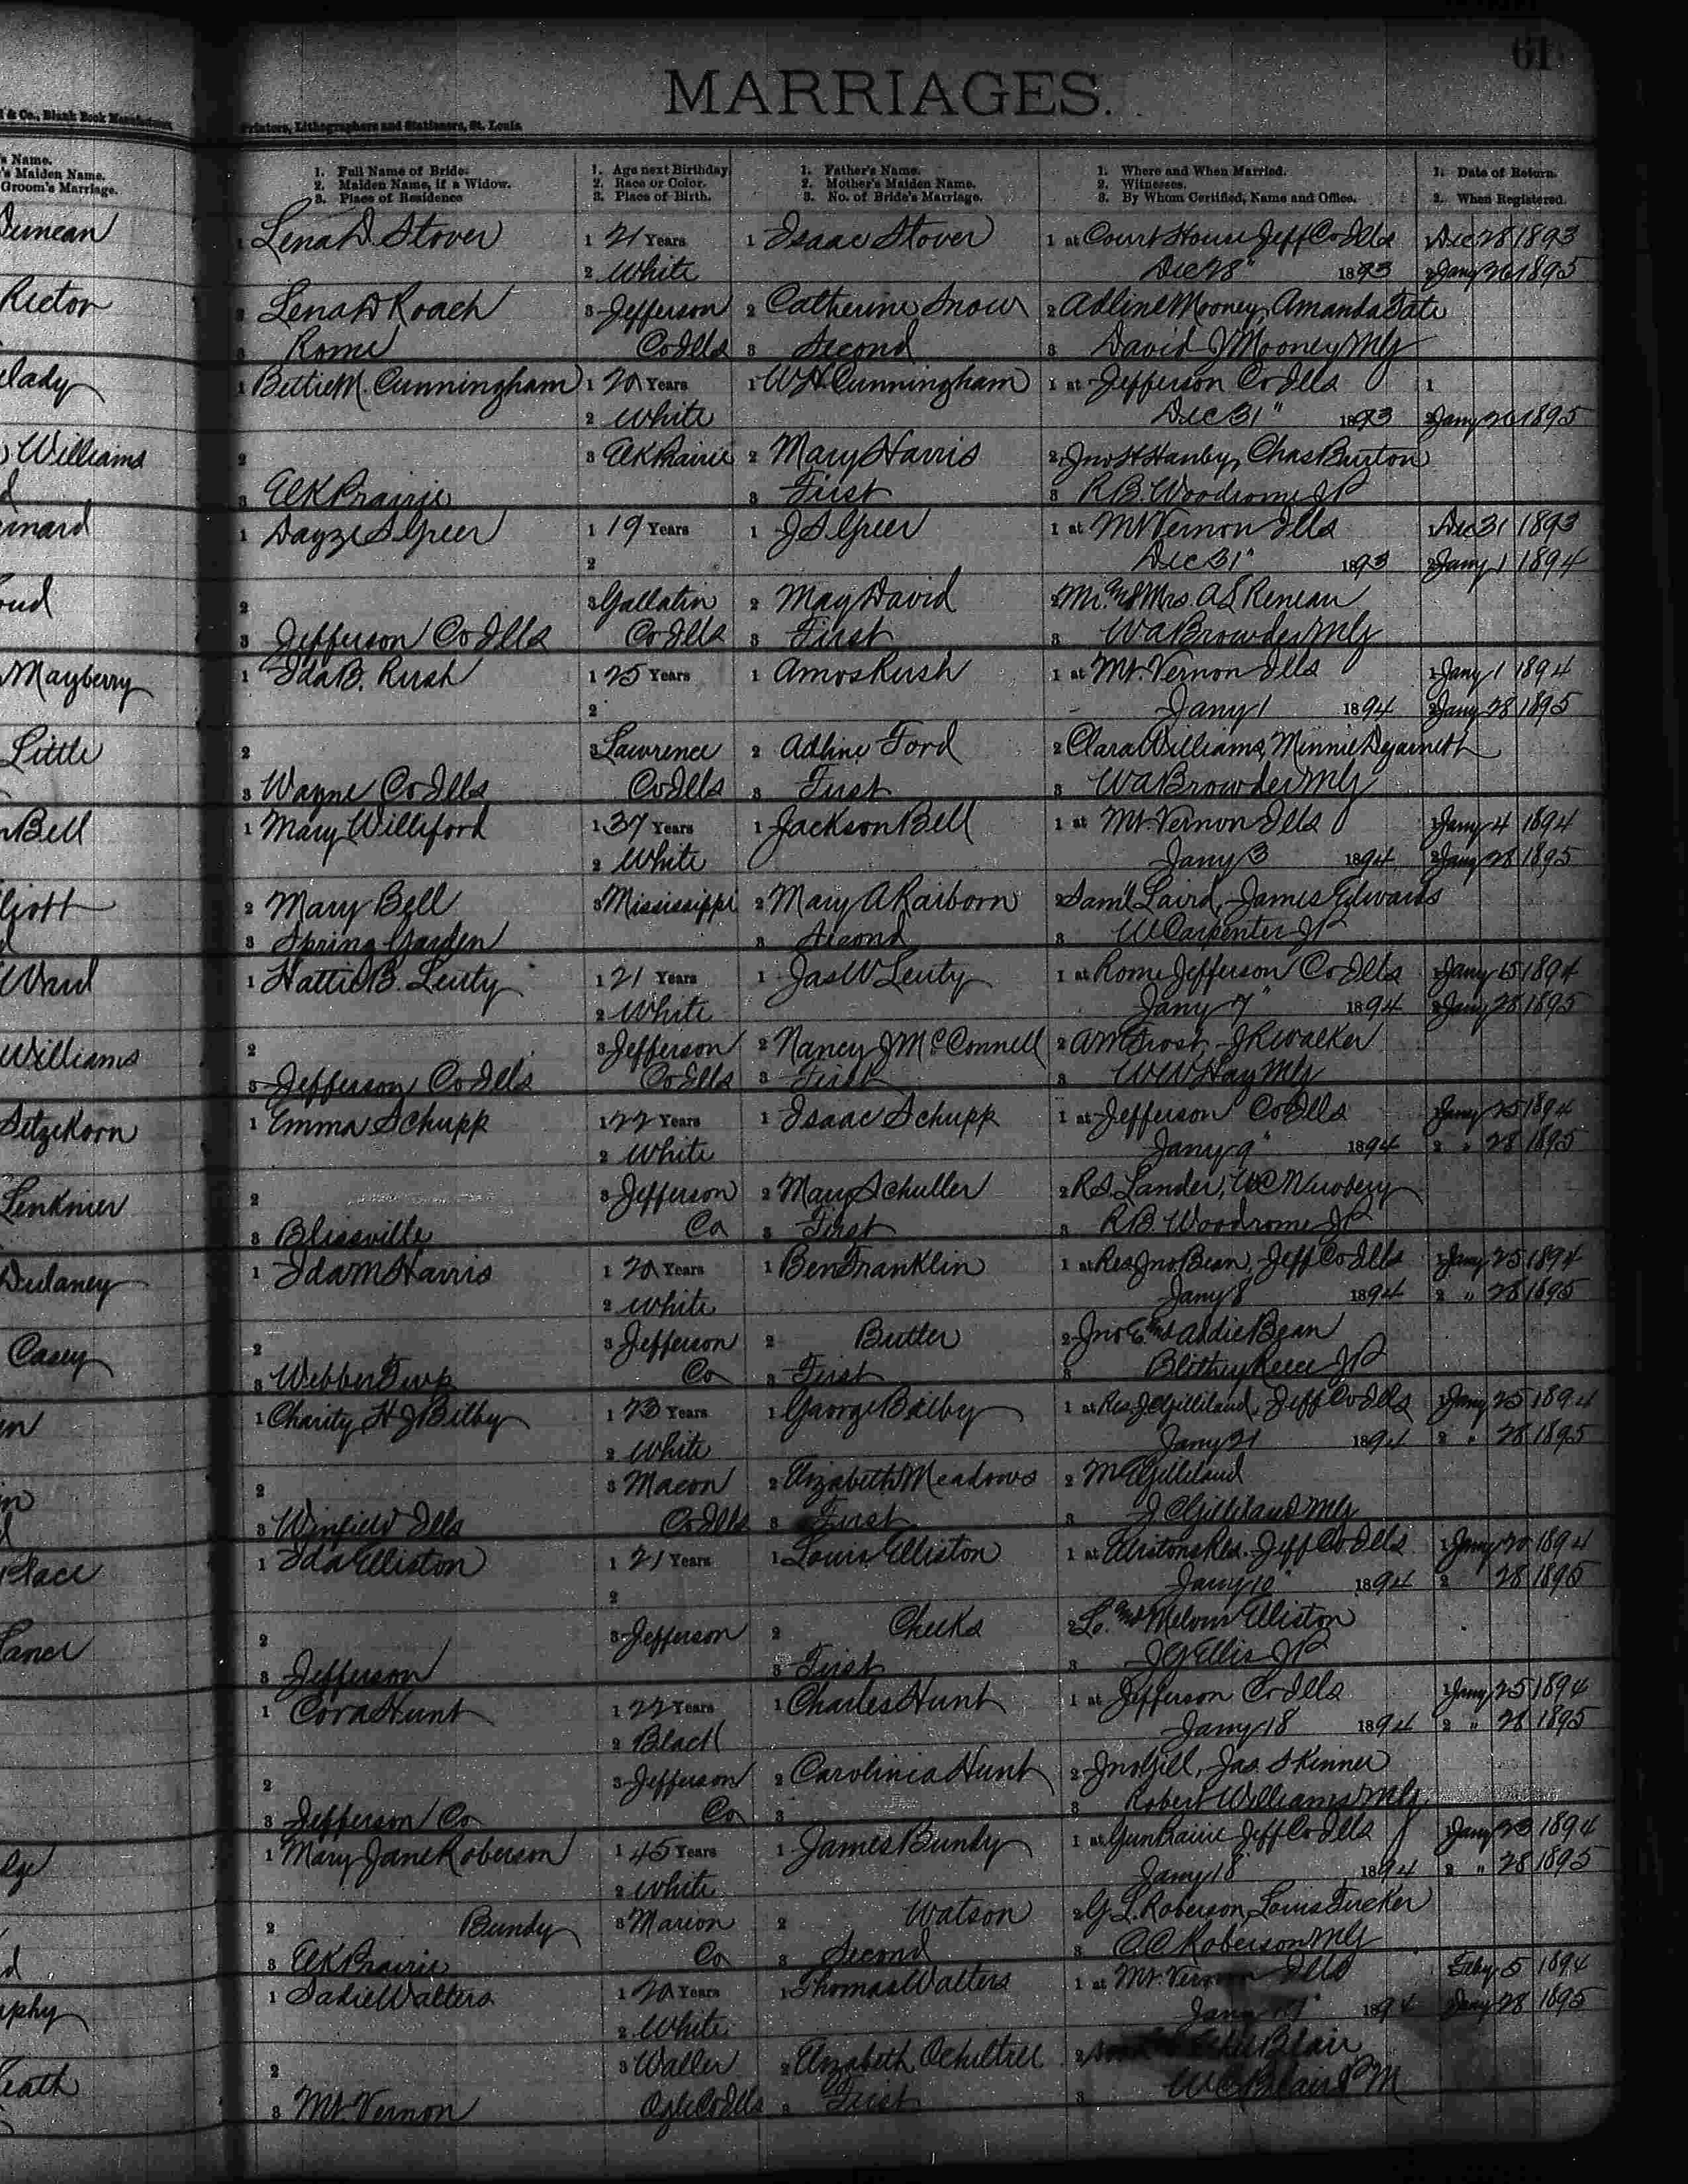 61
MARRIAGES.
& Co., Blank Book Manufacturers,
Printers, Lithographers and Stationers, St. Louis.
's Name.
's Maiden Name.
Groom's Marriage.
1. Full Name of Bride.
2. Maiden Name, if a Widow.
3. Place of Residence
1. Age next Birthday
2. Race or Color.
3. Place of Birth.
1. Father's Name.
2. Mother's Maiden Name.
3. No. of Bride's Marriage.
1. Where and When Married.
2. Witnesses.
3. By Whom Certified, Name and Office.
1. Date of Return.
2. When Registered.
Duncan
Rector
lady
Williams
Mayberry
Little
Bell
Williams
Setzekorn
Dulaney
Casey
1 Lena D. Stover 1 21 Years 1 Isaac Stover 1 at Court House Jeff Co Ills Dec 28 1893
2 White Dec 28" 1893 2 Jany 26 1895
2 Lena D Roach 3 Jefferson 2 Catherine Snow 2 Adline Mooney, Amanda Tate
3 Rome Co Ills 3 Second 3 David J Mooney MG
1 Bettie M. Cunningham 1 20 Years 1 W H Cunningham 1 at Jefferson Co Ills 1
2 White Dec 31" 1893 2 Jany 26 1895
2 3 Elk Prairie 2 Mary Harris 2 Jno H Hanby, Chas Burton
3 Elk Prairie 3 First 3 R.B. Woodrome JP
1 Dayze S Greer 1 19 Years 1 J S Greer 1 at Mt Vernon Ills Dec 31 1893
2 Dec 31" 1893 2 Jany 1 1894
2 3 Gallatin 2 May David 2 Mr. and Mrs. A S Reneau
3 Jefferson Co Ills Co Ills 3 First 3 W A Browder MG
1 Ida B. Rush 1 25 Years 1 Amos Rush 1 at Mt. Vernon Ills 1 Jany 1 1894
2 Jany 1 1894 2 Jany 28 1895
2 3 Lawrence 2 Adline Ford 2 Clara Williams, Minnie Dejarnett
3 Wayne Co Ills Co Ills 3 First 3 W A Browder MG
1 Mary Williford 1 37 Years 1 Jackson Bell 1 at Mt. Vernon Ills 1 Jany 4 1894
2 White Jany 3 1894 2 Jany 28 1895
2 Mary Bell 3 Mississippi 2 Mary A Raiborn 2 Saml Laird, James Edwards
3 Spring Garden 3 Second 3 W Carpenter JP
1 Hattie B. Lenty 1 21 Years 1 Jas W Lenty 1 at Rome Jefferson Co Ills 1 Jany 15 1894
2 White Jany 7" 1894 2 Jany 28 1895
2 3 Jefferson 2 Nancy J McConnell 2 A M Frost, J R Walker
3 Jefferson Co Ills Co Ills 3 First 3 W W Hay MG
1 Emma Schupp 1 22 Years 1 Isaac Schupp 1 at Jefferson Co Ills 1 Jany 25 1894
2 White Jany 9" 1894 2 " 28 1895
2 3 Jefferson 2 Mary Schuller 2 R S. Lander, W C Newbery
3 Blissville Co 3 First 3 R B. Woodrome JP
1 Ida M Harris 1 20 Years 1 Ben Franklin 1 at Res Jno Bean, Jeff Co Ills 1 Jany 25 1894
2 White Jany 8 1894 2 " 28 1895
2 3 Jefferson 2 Butler 2 Jno E. and Addie Bean
3 Webber Twp Co 3 First 3 Reece JP
1 Charity H J Bilby 1 23 Years 1 George Bilby 1 at Res J C Gilliland, Jeff Co Ills 1 Jany 25 1894
2 White Jany 21 1894 2 " 28 1895
2 3 Macon 2 Elizabeth Meadows 2 M E Gilliland
3 Winfield Ills Co Ills 3 First 3 J C Gilliland MG
1 Ida Elliston 1 21 Years 1 Louis Elliston 1 at Res. Jeff Co Ills 1 Jany 20 1894
2 Jany 10" 1894 2 28 1895
2 3 Jefferson 2 Cheeks 2 L. and Melvin Elliston
3 Jefferson 3 First 3 J G Ellis JP
1 Cora Hunt 1 22 Years 1 Charles Hunt 1 at Jefferson Co Ills 1 Jany 25 1894
2 Black Jany 18 1894 2 " 28 1895
2 3 Jefferson 2 Carolinia Hunt 2 Jno Gill, Jas. Skinner
3 Jefferson Co Co 3 3 Robert Williams MG
1 Mary Jane Roberson 1 45 Years 1 James Bundy 1 at Gun Prairie Jeff Co Ills Jany 23 1894
2 White Jany 18 1894 2 " 28 1895
2 Bundy 3 Marion 2 Watson 2 G. L. Roberson, Louis Tucker
3 Elk Prairie Co 3 Second 3 C. C Roberson MG
1 Sadie Walters 1 20 Years 1 Thomas Walters 1 at Mt. Vernon Ills Feby 5 1894
2 White Jany 1894 Jany 28 1895
2 3 Waller 2 Elizabeth Ocheltree 2 Blair
3 Mt. Vernon Ogle Co Ills 3 First 3 W C Blair P M